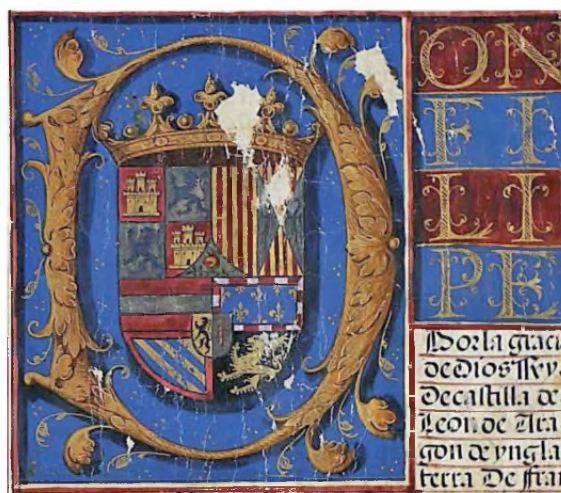 DON
FI
LI
PE
Porla graci
deDios Rey
Decastilla de
Leon. de Ara
gon de yngla
terra De fran